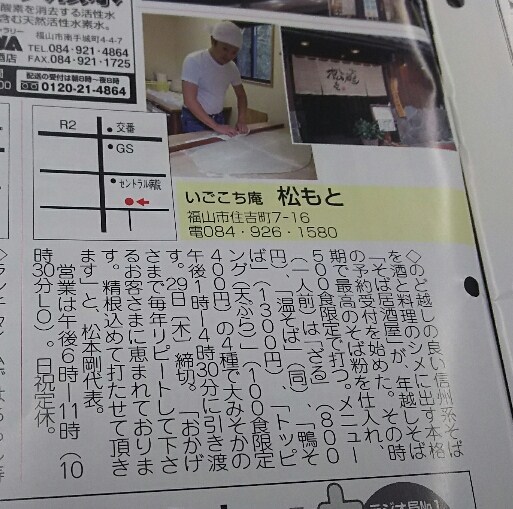 酸素を消去する活性水
含む天然活性水素水。
ラリー 福山市南手城町4-4-7
WA TEL 084-921-4864
酒店 FAX.084-921-1725
間 配送の受付は朝8時~夜8時
00 0120-21-4864
R2
交番
GS
セントラル病院
いごこち庵 松もと
福山市住吉町7-16
電084・926・1580
◇のど越しの良い信州系そば
を酒と料理のシメに出す本格
「そば居酒屋」が、年越しそば
の予約受付を始めた。その時
期で最高のそば粉を仕入れ、
500食限定で打つ。メニュー
(一人前)は「ざる」(800
円)、「温そば」(同)、「鴨そ
ば」(1300円)、「トッピ
ング(天ぷら)」(100食限定
400円)の4種で大みそかの
午後1時―4時30分に引き渡
す。29日(木)締切。「おかげ
さまで毎年リピートして下さ
るお客さまに恵まれておりま
す。精根込めて打たせて頂き
ます」と、松本剛代表。
営業は午後6時―11時(10
時30分LO)。日祝定休。
ラジオ局No.1